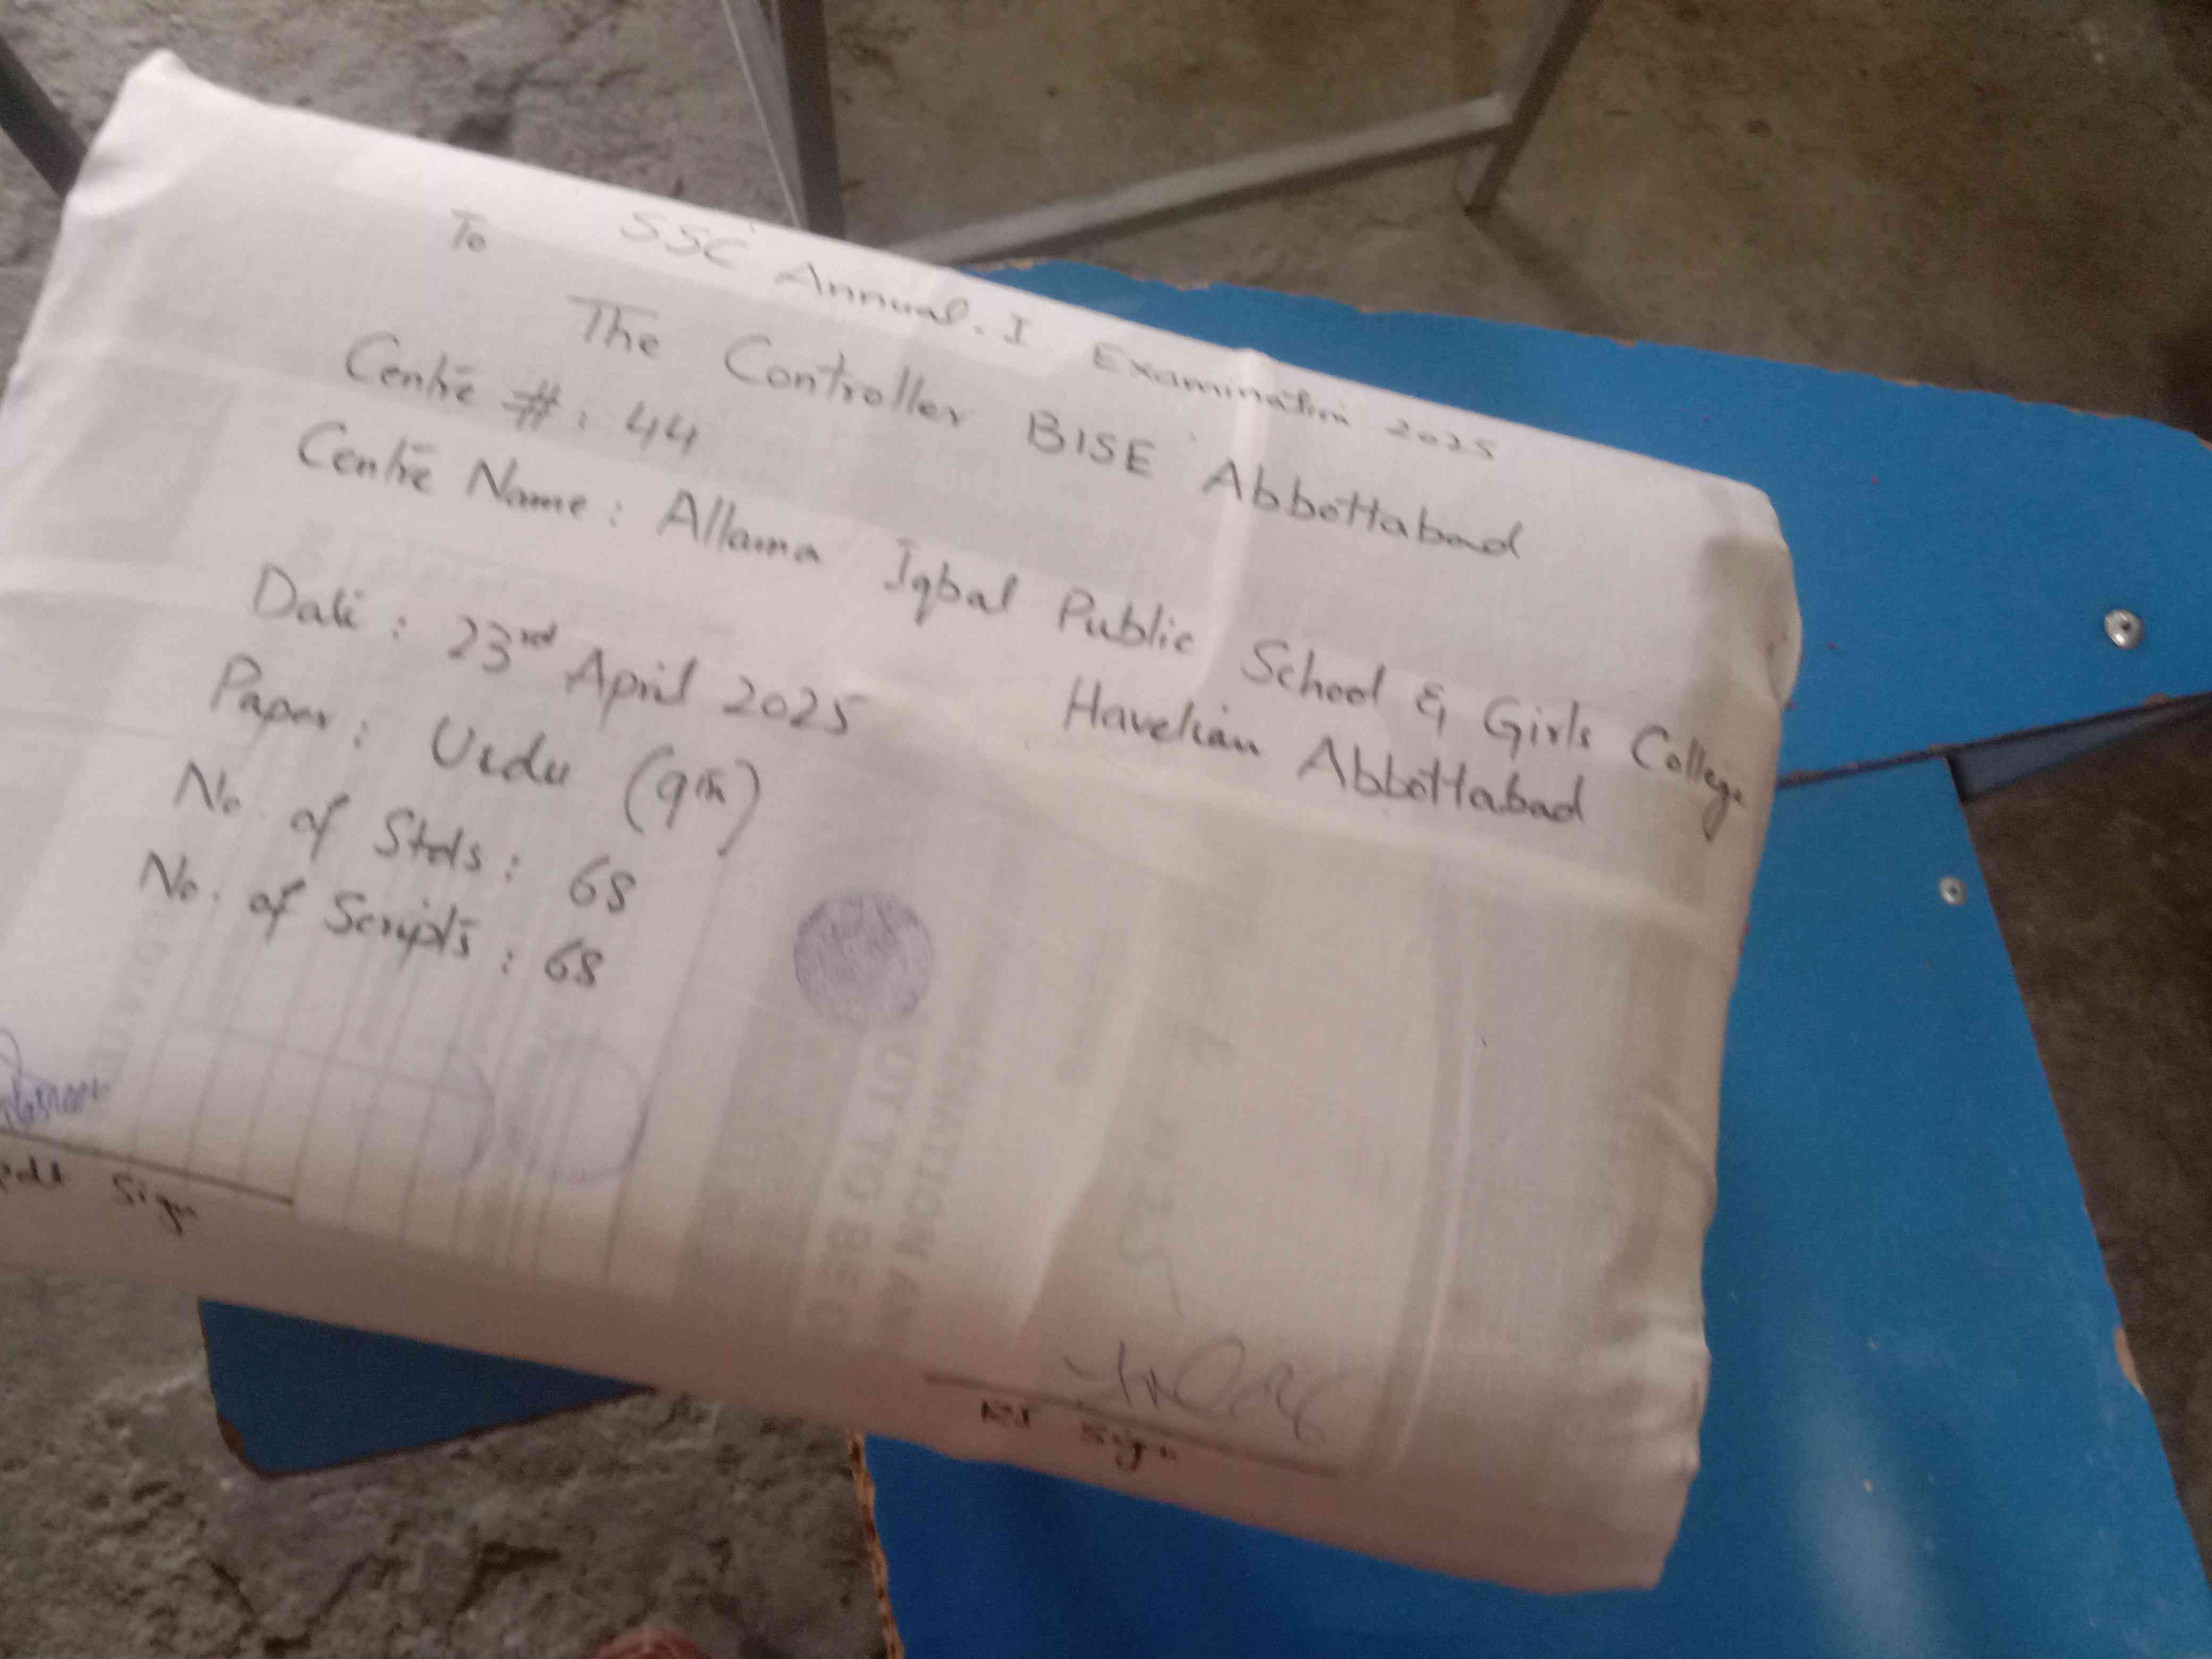 SSC Annual-I Examination 2025
To
The Controller BISE Abbottabad
Centre #: 44
Centre Name: Allama Iqbal Public School & Girls College
Havelian Abbottabad
Date: 23rd April 2025
Paper: Urdu (9th)
No. of Stds: 68
No. of Scripts: 68
NOT TO BE
Sign
RI Sign